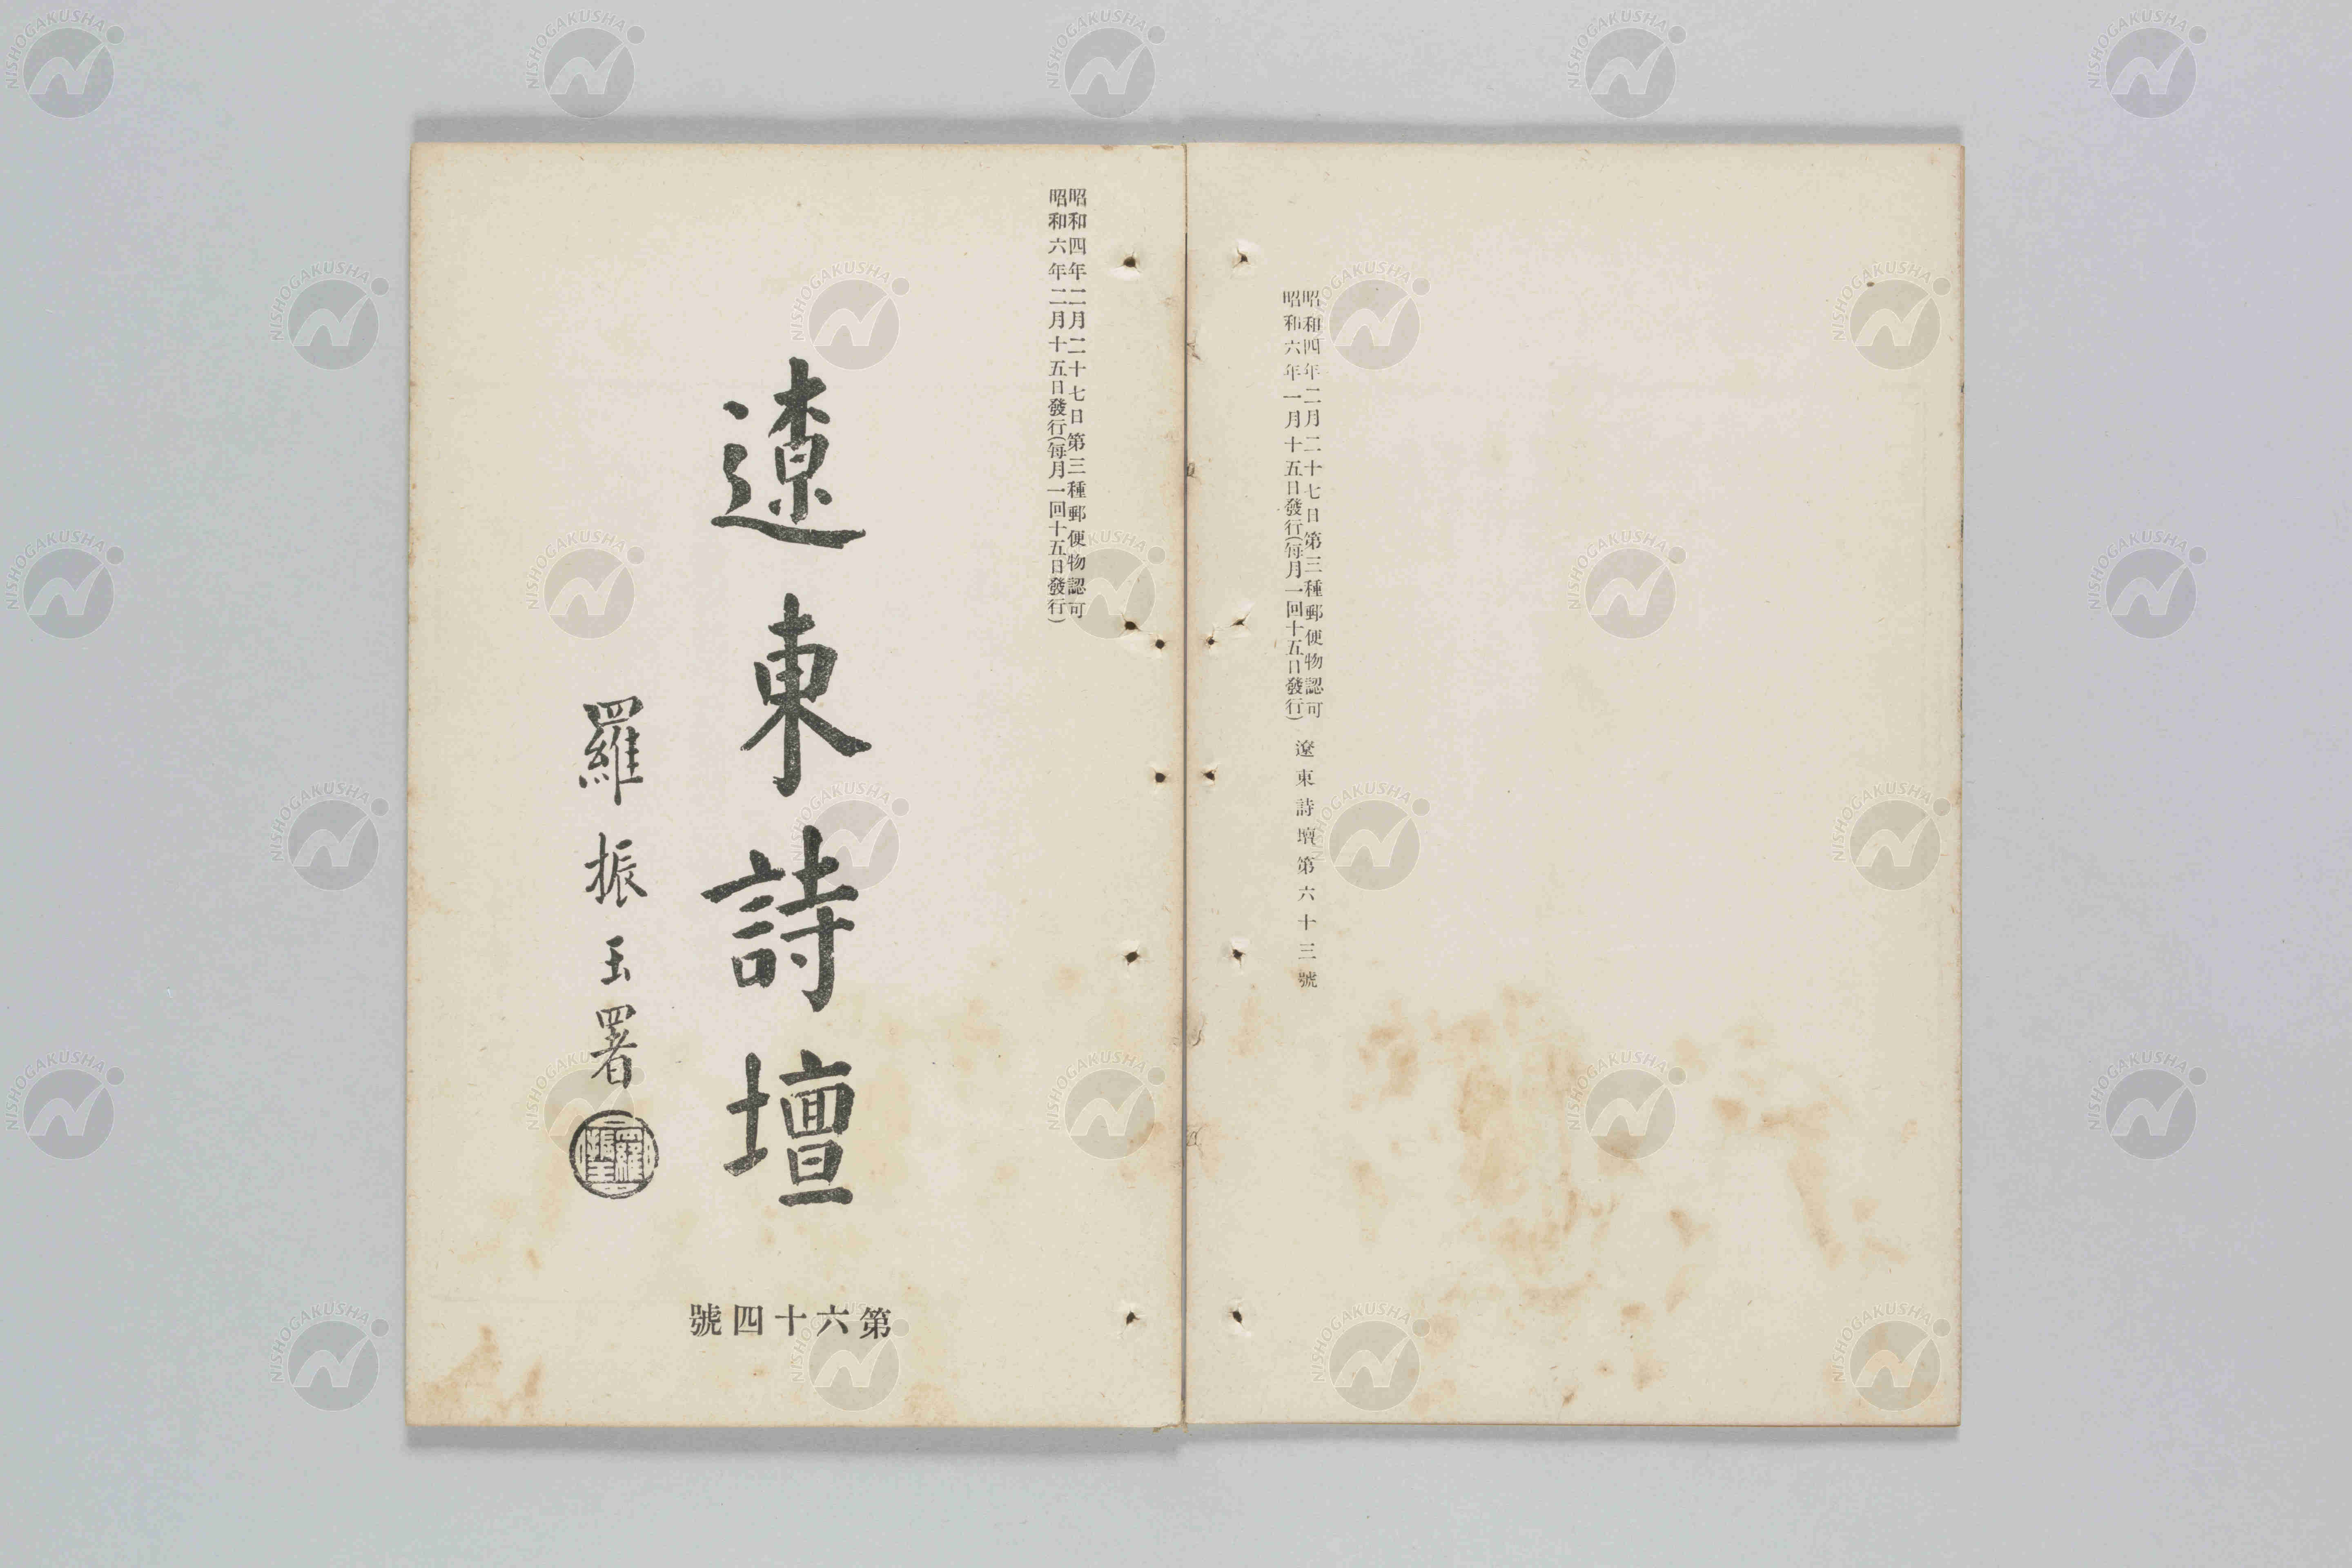 昭和四年二月二十七日第三種郵便物認可
昭和六年一月十五日發行(每月一回十五日發行)
遼東詩壇第六十三號
昭和四年二月二十七日第三種郵便物認可
昭和六年二月十五日發行(每月一回十五日發行)
遼東詩壇
羅振玉署
羅振玉
第六十四號
NISHOGAKUSHA